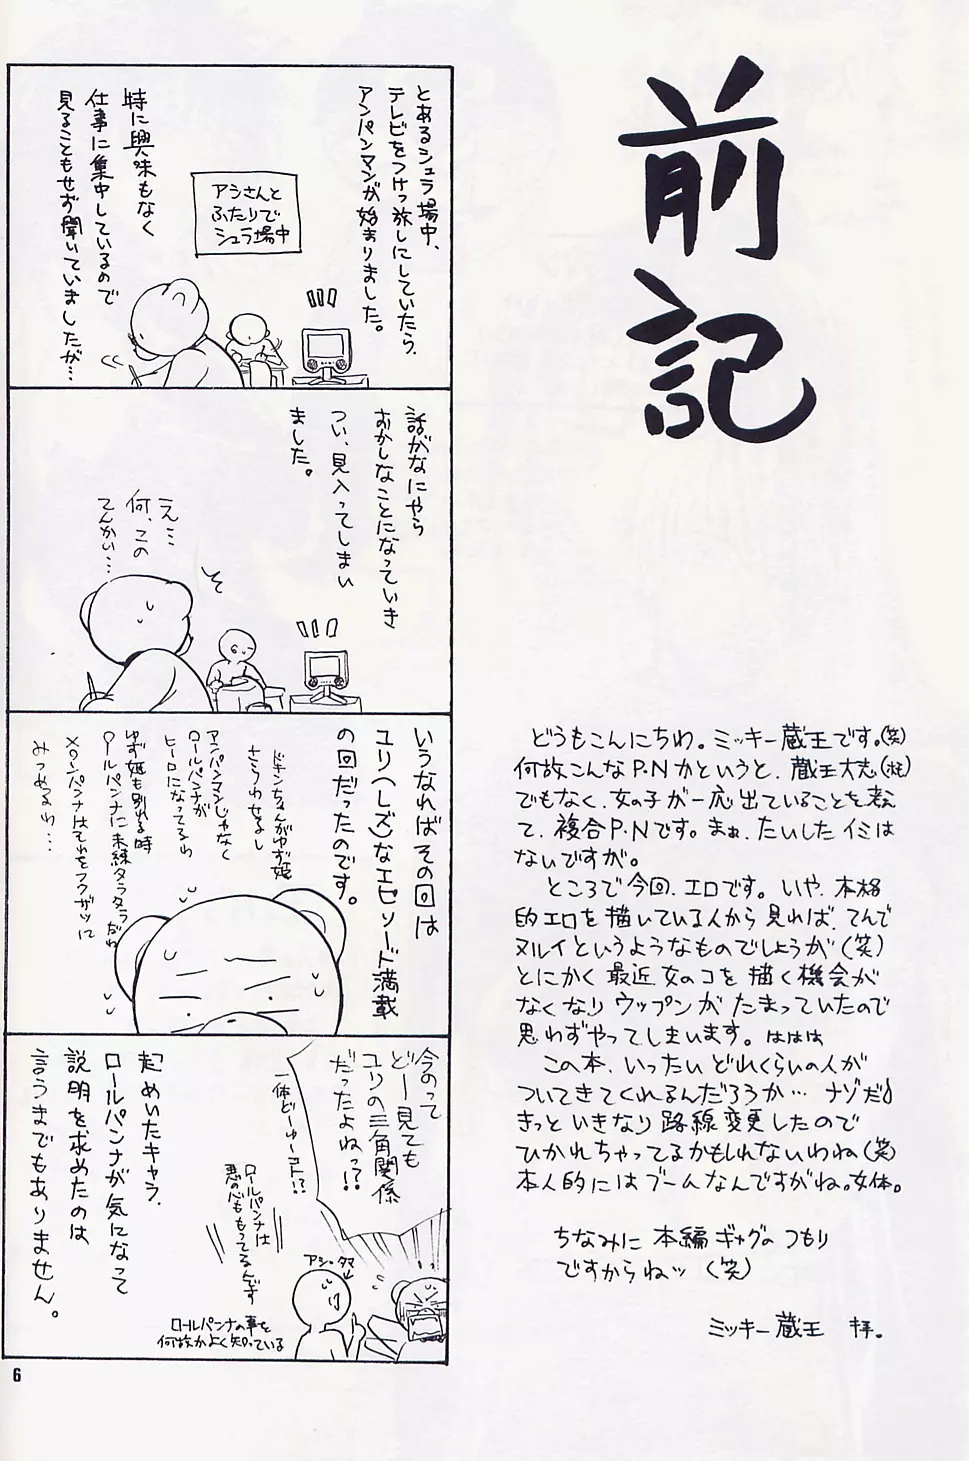 前記
どうもこんにちわ。ミッキー蔵王です。(笑)
何故こんなP.Nかというと、蔵王大志
でもなく、女の子が一応出ていることを考え
て、複合P・Nです。まぁ、たいしたイミは
ないですが。
ところで今回、エロです。いや、本格
的エロを描いている人から見れば、てんで
ヌルイというようなものでしょうが(笑)
とにかく最近女のコを描く機会が
なくなりウップンがたまっていたので
思わずやってしまいます。ははは
この本、いったいどれくらいの人が
ついてきてくれるんだろうか…ナゾだ♪
きっといきなり路線変更したので
ひかれちゃってるかもしれないわね(笑)
本人的にはブームなんですがね。女体。
ちなみに本編ギャグのつもり
ですからねッ(笑)
ミッキー蔵王 拝。
とあるシュラ場中、
テレビをつけっ放しにしていたら、
アンパンマンが始まりました。
アシさんと
ふたりで
シュラ場中
特に興味もなく
仕事に集中しているので
見ることもせず聞いていましたが…
話がなにやら
おかしなことになっていき
つい、見入ってしまい
ました。
え…
何、この
てんかい…
いうなればその回は
ユリ(レズ)なエピソード満載
の回だったのです。
ドキンちゃんがゆず姫
さらわせるし
アンパンマンじゃなく
ロールパンナが
ヒーローになってるわ
ゆず姫も別れる時
ロールパンナに未練タラタラだわ
メロンパンナはそれをフクザツに
みつめるわ…
今のって
どー見ても
ユリの三角関係
だったよねっ?!
一体どーゆーコト!?
ロールパンナは
悪の心ももってるんです
アシ・タマ
ロールパンナの事を
何故かよく知っている
起めいたキャラ、
ロールパンナが気になって
説明を求めたのは
言うまでもありません。
6